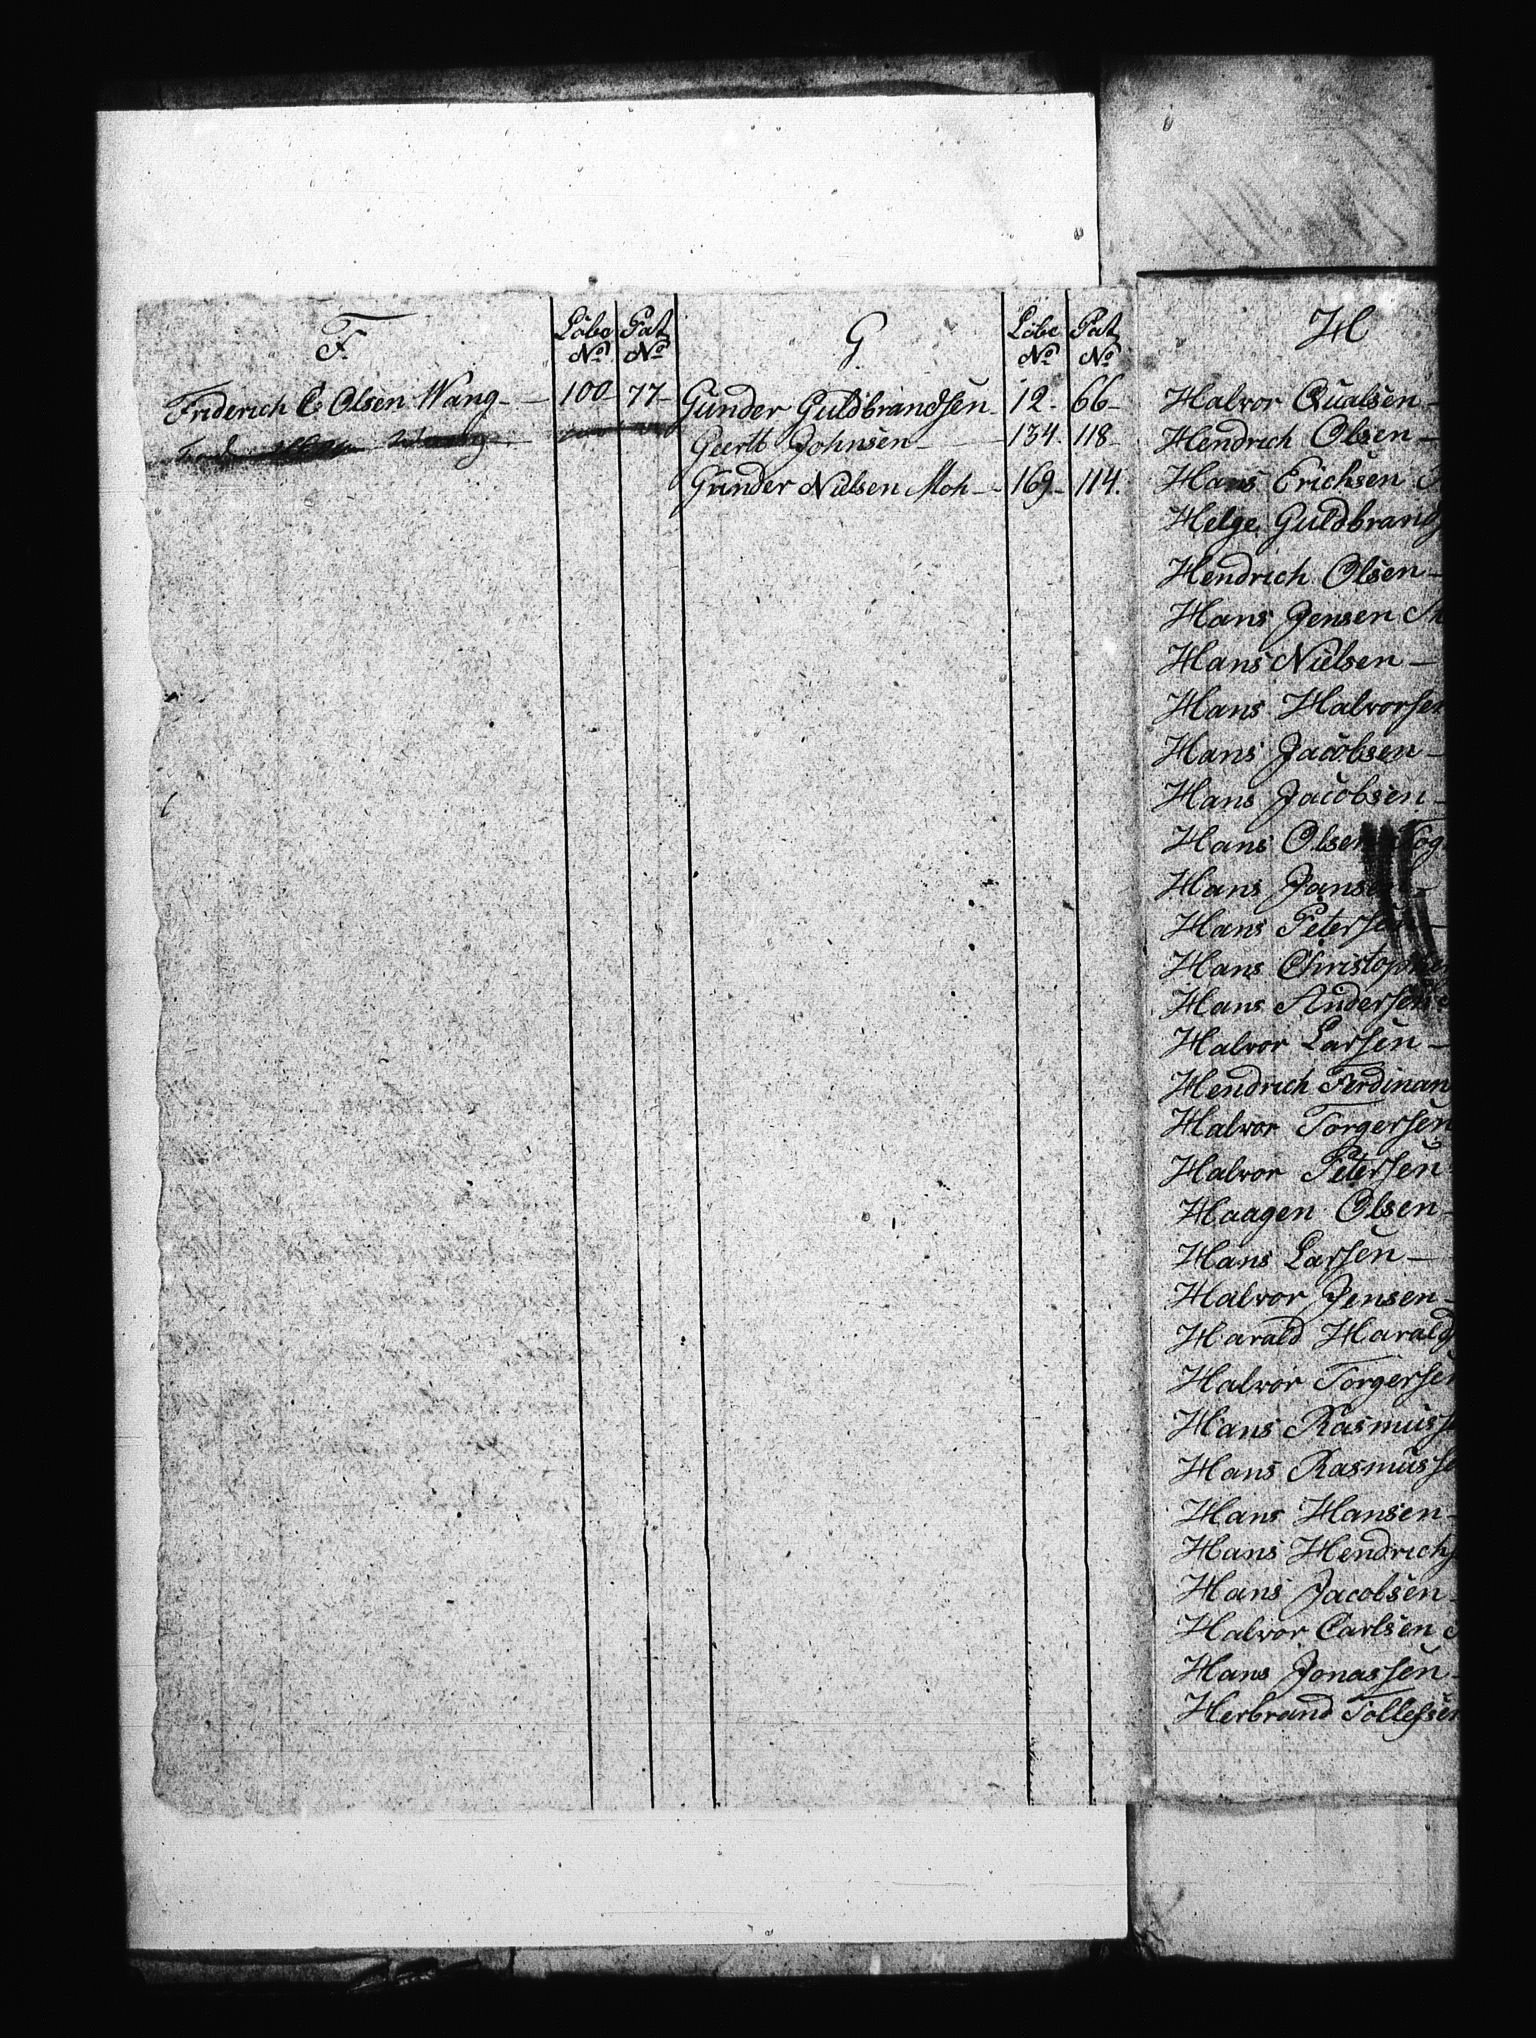 F. Löbe Pat G. Löbe Pat
No No No No
Friderich C Olsen Wang 100 77 Gunder Guldbrandsen 12 66
Geertt Johnsen 134 118
Gunder Nielsen Moh 169 114
H
Halvor Qualsen
Hendrich Olsen
Hans Erichsen
Helge Guldbrand
Hendrich Olsen
Hans Jensen
Hans Nielsen
Hans Halvorsen
Hans Jacobsen
Hans Jacobsen
Hans Olsen
Hans Jansen
Hans Petersen
Hans Christopher
Hans Andersen
Halvor Larsen
Hendrich Ferdinan
Halvor Torgersen
Halvor Petersen
Haagen Olsen
Hans Larsen
Halvor Jensen
Harald Harald
Halvor Torgersen
Hans Rasmusse
Hans Rasmusse
Hans Hansen
Hans Hendrichs
Hans Jacobsen
Halvor Carlsen
Hans Jonassen
Herbrand Tollefsen